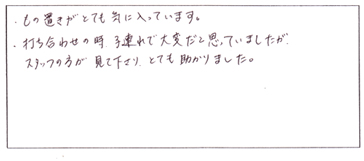 ・もの置きがとても気に入っています。
・打ち合わせの時、子連れで大変だと思っていましたが、
スタッフの方が見て下さり、とても助かりました。